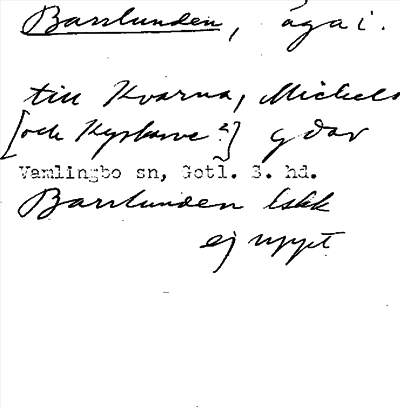 Barrlunden, äga i.
till Kvarna, Michels
[och Kyrkarve?] gdar
Vamlingbo sn, Gotl. S. hd.
Barrlunden
ej nytt